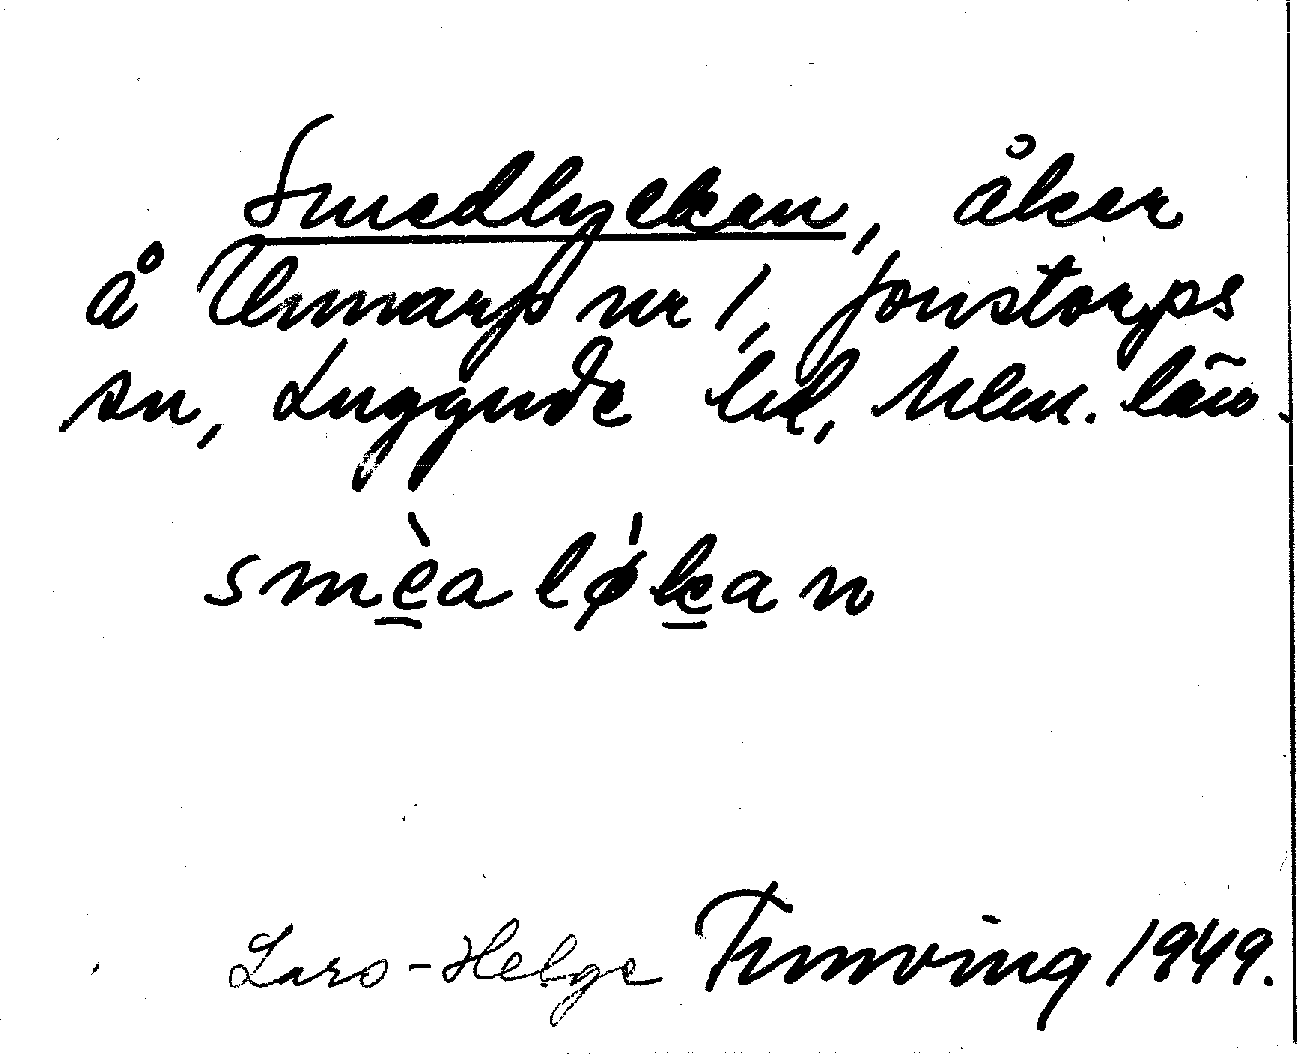 Smedlyckan, åker
å Unnarp nr 1, Jonstorps
sn, Luggude hd, Mlm. län.
smèa lø̍kan
Lars-Helge Tunving 1949.